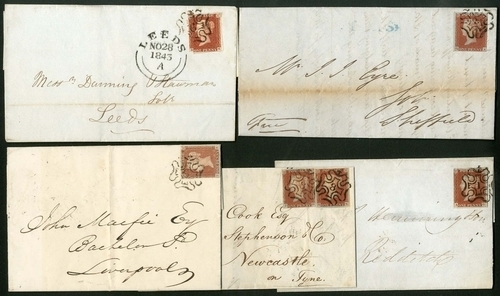 LEEDS
NO 28
1843
A
Messrs Dunning &
Solrs
Leeds
Mr. J. J. Eyre
Solr
Sheffield
Free
John Macfie Esq
Bachelor St
Liverpool
Cook Esq
Stephenson & Co
Newcastle
on Tyne